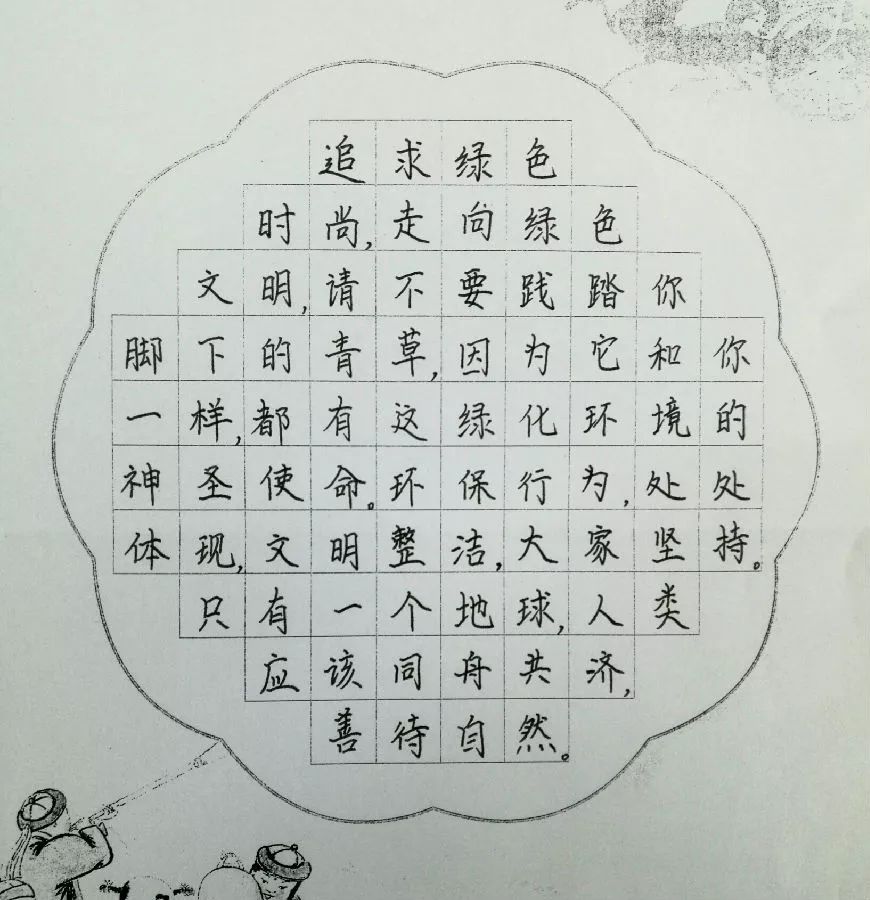 追求绿色
时尚,走向绿色
文明,请不要践踏你
脚下的青草,因为它和你
一样,都有这绿化环境的
神圣使命。环保行为,处处
体现,文明整洁,大家坚持。
只有一个地球,人类
应该同舟共济,
善待自然。